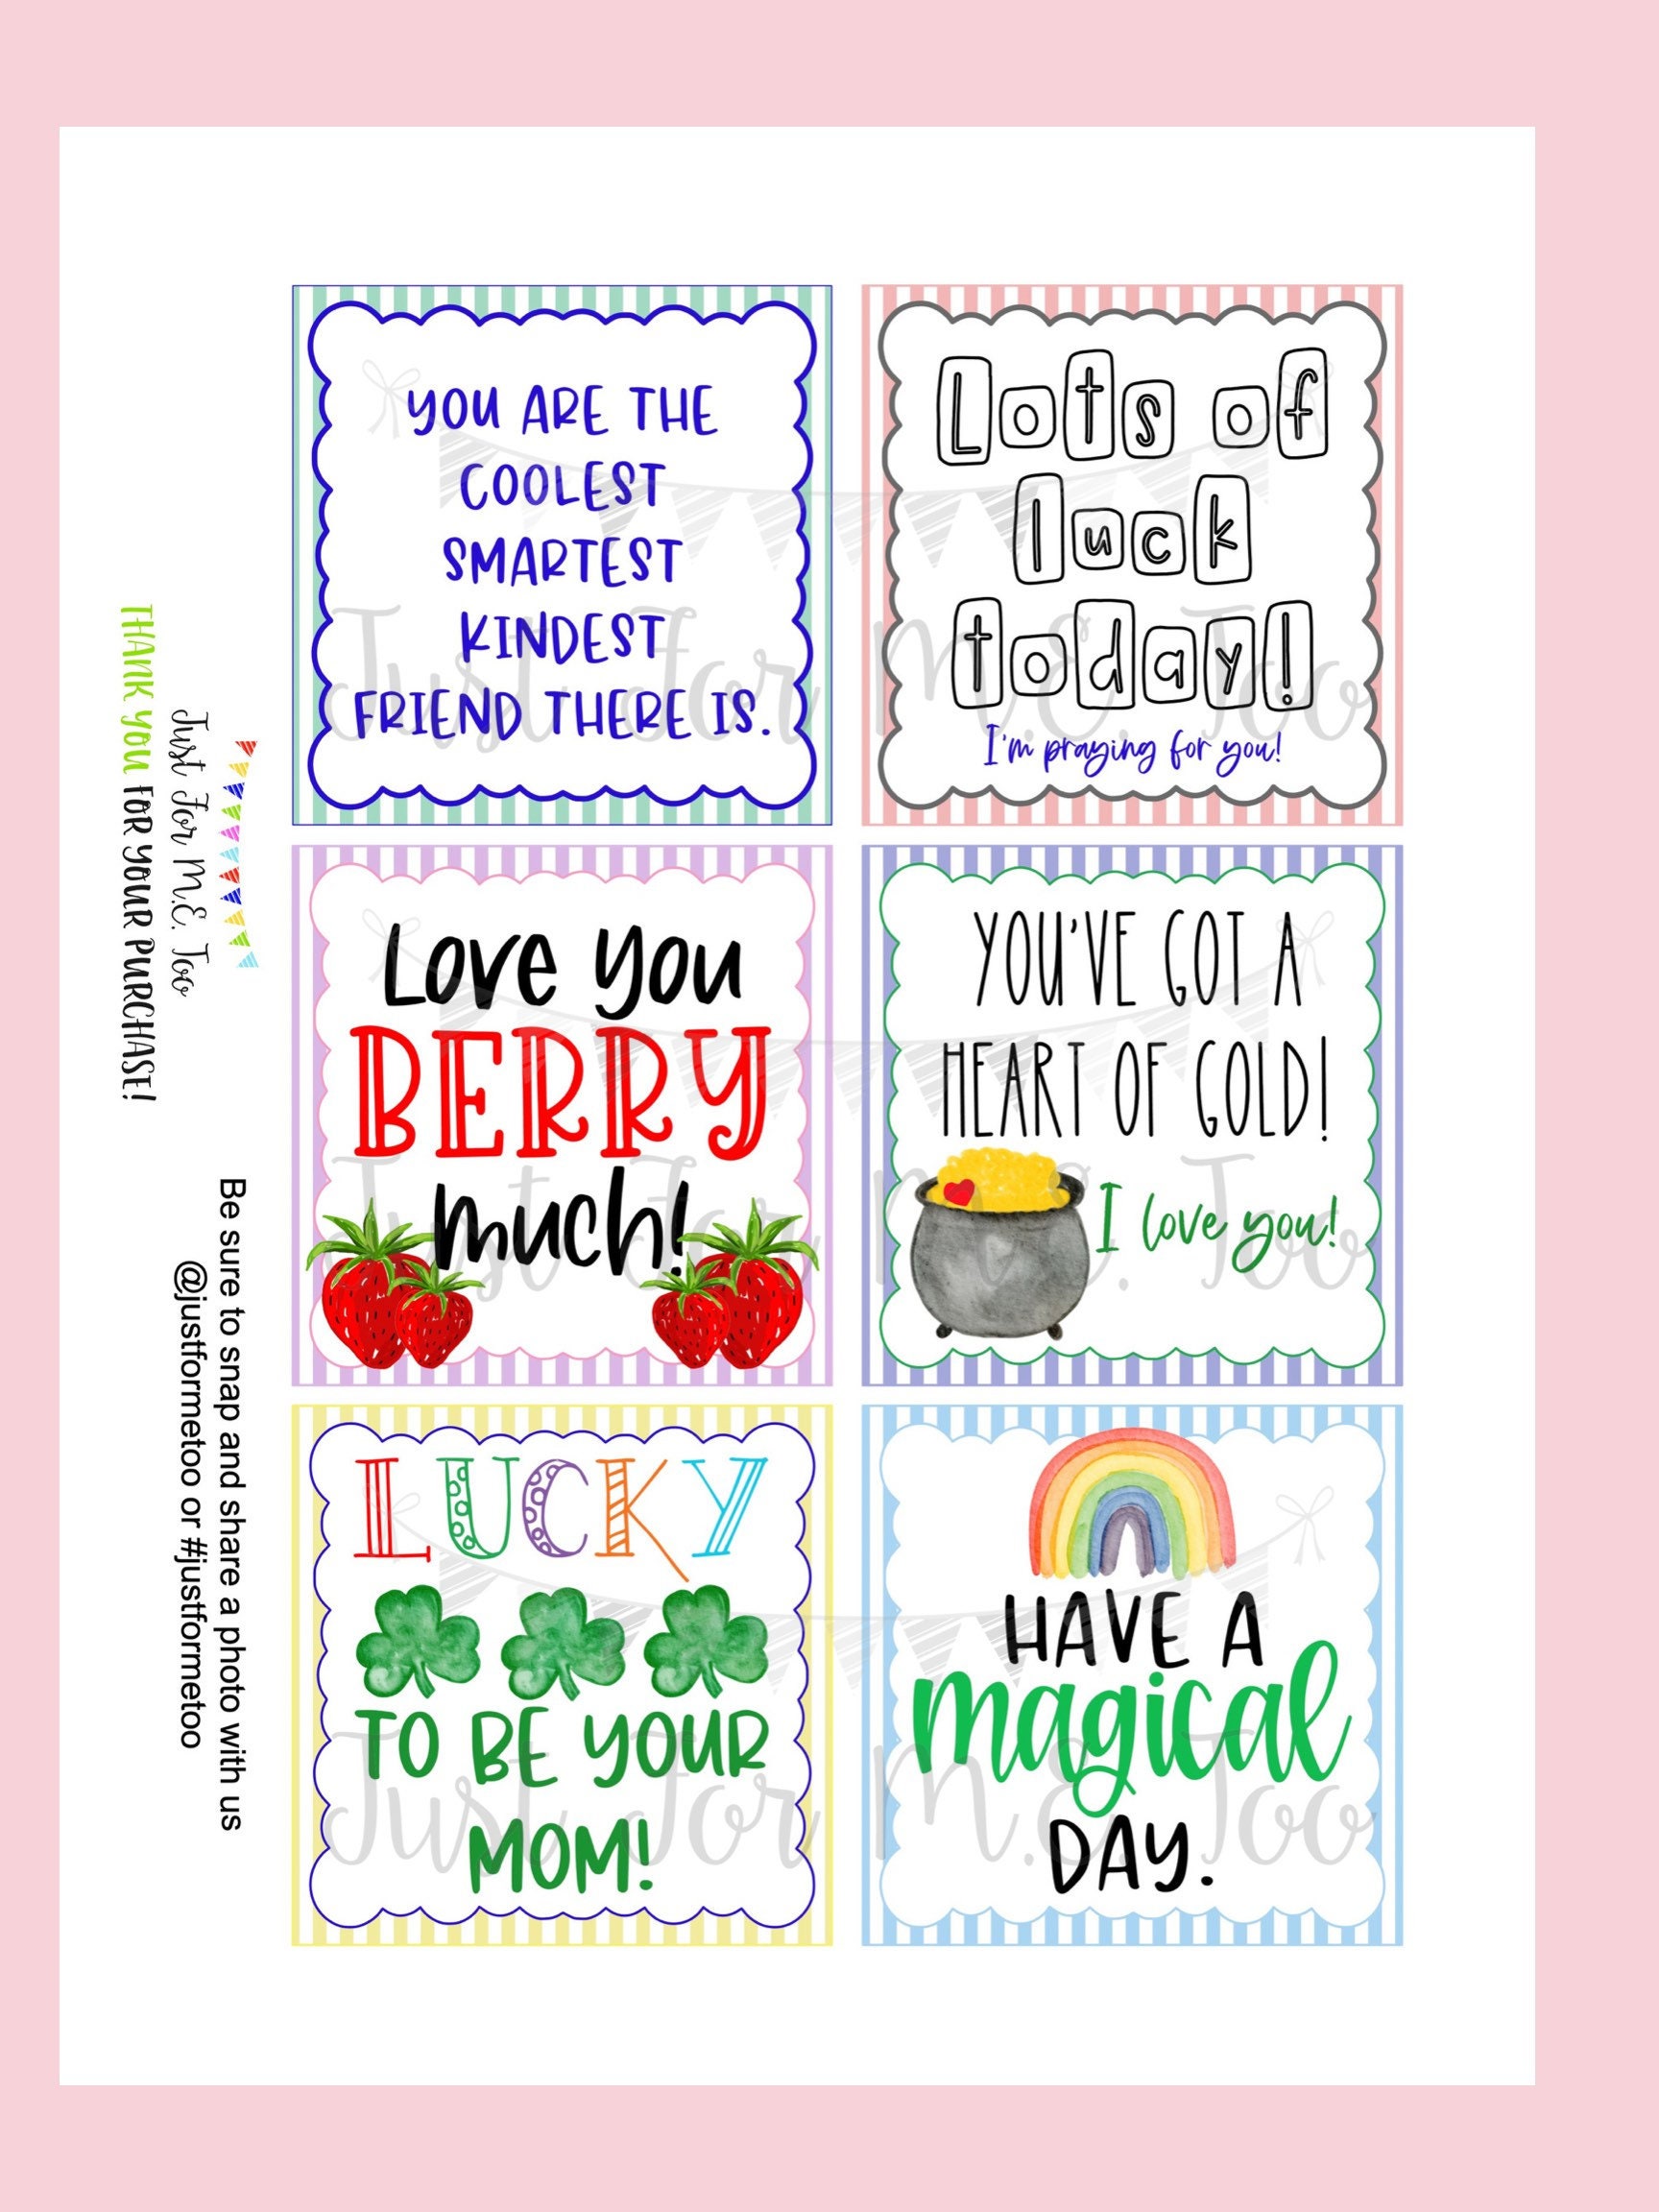 YOU ARE THE
COOLEST
SMARTEST
KINDEST
FRIEND THERE IS.
Lots of
luck
today!
I'm praying for you!
Love you
BERRY
much!
YOU'VE GOT A
HEART OF GOLD!
I love you!
LUCKY
TO BE YOUR
MOM!
HAVE A
magical
DAY.
Just For M.E. Too
THANK YOU FOR YOUR PURCHASE!
Be sure to snap and share a photo with us
@justformetoo or #justformetoo
Just For M.E. Too
Just For M.E. Too
Just For M.E. Too